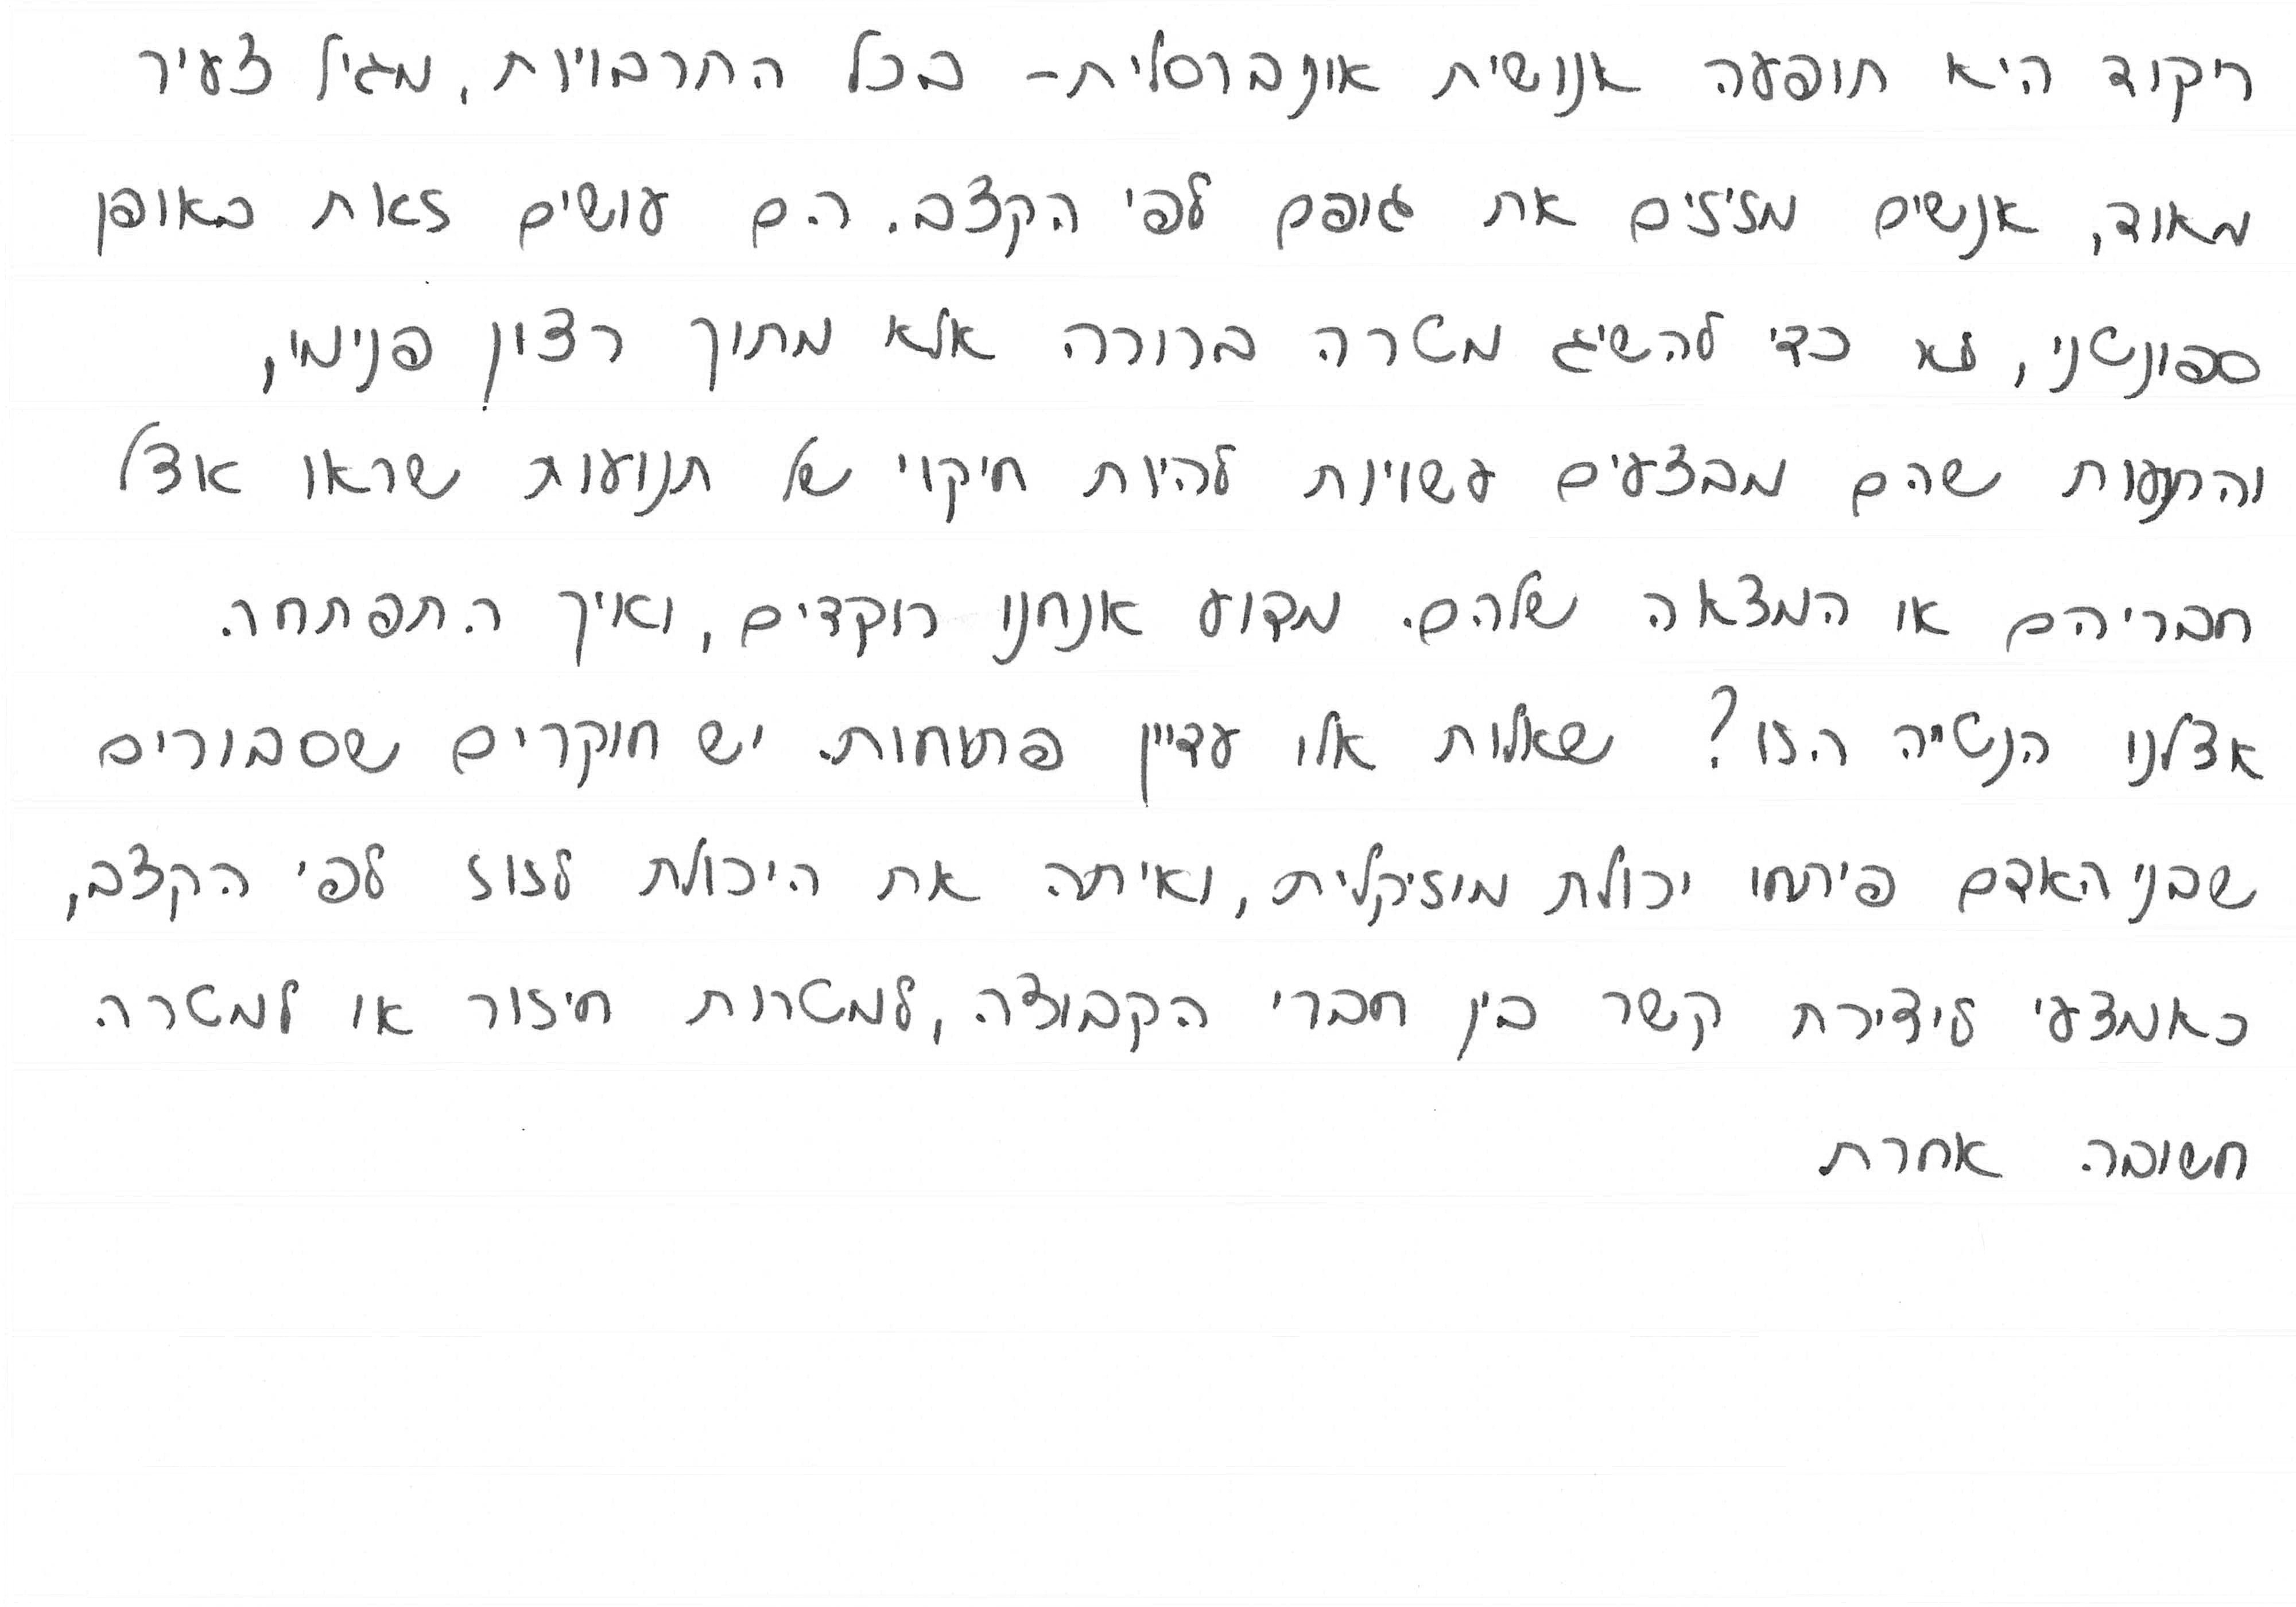 ריקוד היא תופעה אנושית אוניברסלית- בכל התרבויות, מגיל צעיר
מאוד, אנשים מזיזים את גופם לפי הקצב. הם עושים זאת באופן
ספונטני, לא כדי להשיג מטרה ברורה אלא מתוך רצון פנימי,
והתנועות שהם מבצעים עשויות להיות חיקוי של תנועות שראו אצל
חבריהם או המצאה שלהם. מדוע אנחנו רוקדים, ואיך התפתחה
אצלנו הנטייה הזו? שאלות אלו עדיין פתוחות. יש חוקרים שסבורים
שבני האדם פיתחו יכולת מוזיקלית, ואיתה את היכולת לזוז לפי הקצב,
כאמצעי ליצירת קשר בין חברי הקבוצה, למטרות חיזור או למטרה
חשובה אחרת